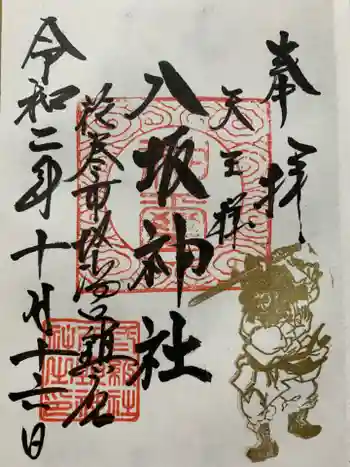 奉拝
天王様
八坂神社
花巻市城内鎮座
令和二年十月十六日